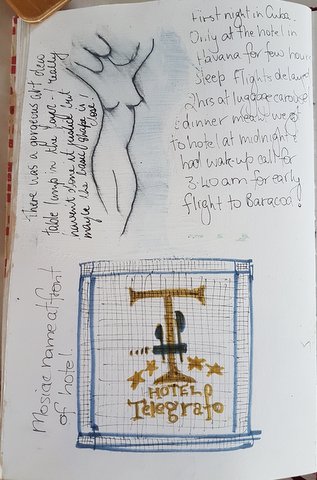 There was a gorgeous art deco
table lamp in the foyer - I really
haven't done it justice but
maybe the basic shape is
First night in Cuba.
Only at the hotel in
Havana for few hours
sleep flights delayed
2hrs at luggage carousel
& dinner meant we got
to hotel at midnight &
had wake-up call for
3:40 am for early
flight to Baracoa!
Mosiac name at front
of hotel.
T
HOTEL
Telegrafo